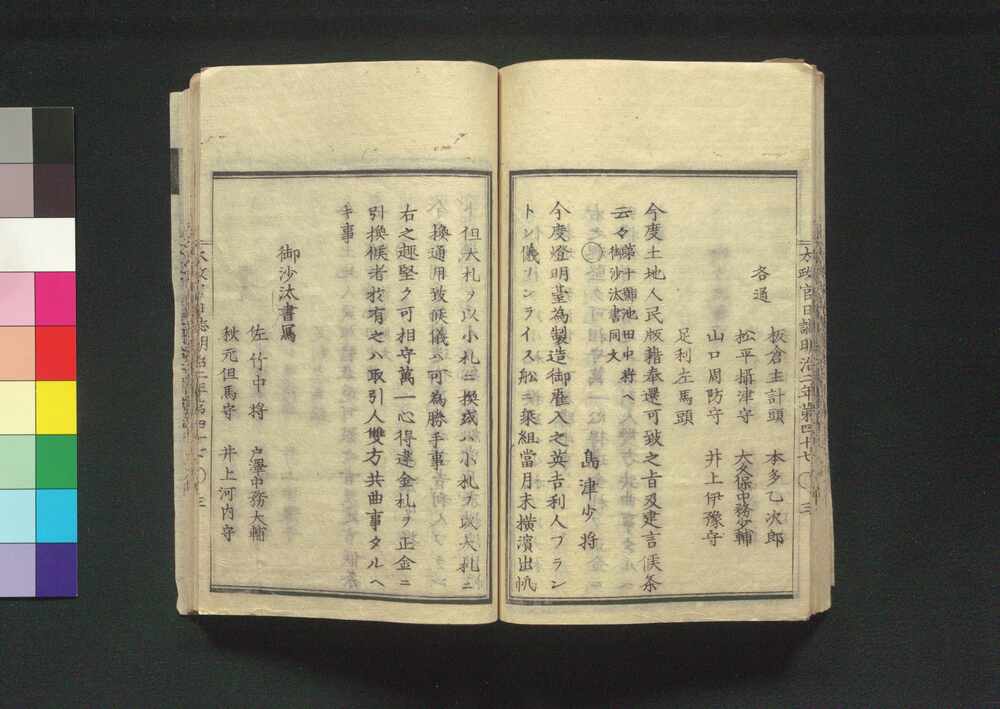 太政官日誌明治二年第四十七 ○ 三
各通
板倉主計頭 本多乙次郎
松平攝津守 大久保中務少輔
山口周防守 井上伊豫守
足利左馬頭
今度土地人民版籍奉還可致之旨及建言候条
云々 第十三號池田中将ヘ
御沙汰書同文
○
島津少将
今度燈明臺為製造御雇入之英吉利人ブラン
トン儀サンライス舩ヘ乗組當月末横濱出帆
但大札ヲ以小札ニ換或ハ小札ヲ以大札ニ
換通用致候儀ハ可為勝手事
右之趣堅ク可相守萬一心得違金札ヲ正金ニ
引換候者於有之ハ取引人雙方共曲事タルヘ
キ事
御沙汰書寫
佐竹中将 戸澤中務大輔
秋元但馬守 井上河内守
太政官日誌明治二年第四十七 ○ 三